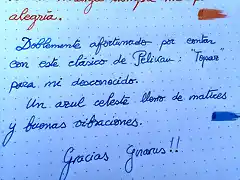 alegría.
Doblemente afortunado por contar
con este clásico de Pelikan: "Topaz"
para mi desconocido.
Un azul celeste lleno de matices
y buenas vibraciones.
Gracias